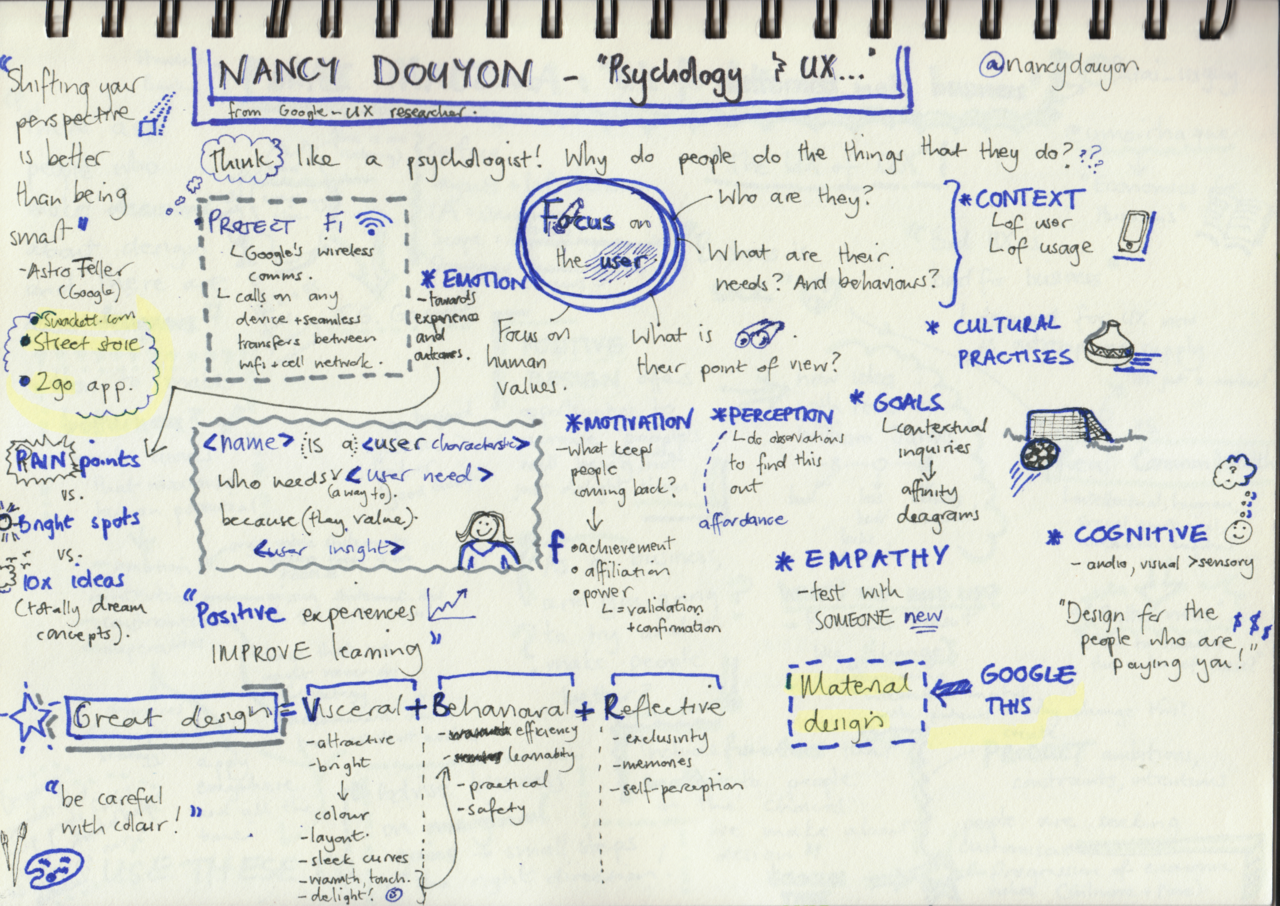 NANCY DOUYON - "Psychology & UX..."
from Google - UX researcher.
@nancydouyon
"Shifting your
perspective
is better
than being
smart"
- Astro Teller
(Google)
Street store
2go app.
Think like a psychologist! Why do people do the things that they do???
PROJECT FI
Google's wireless
comms.
calls on any
device + seamless
transfers between
wifi + cell network.
* EMOTION
- towards
experience
and
outcomes.
Focus on
the user
Who are they?
What are their
needs? And behaviours?
What is
their point of view?
Focus on
human
values.
* CONTEXT
of user
of usage
* CULTURAL
PRACTISES
PAIN points
vs.
Bright spots
vs.
10x ideas
(totally dream
concepts).
<name> is a <user characteristic>
who needs <user need>
(a way to).
because (they value).
<user insight>
* MOTIVATION
- What keeps
people
coming back?
• achievement
• affiliation
• power
= validation
+ confirmation
* PERCEPTION
do observations
to find this
out
affordance
* GOALS
contextual
inquiries
affinity
deagrams
* EMPATHY
- test with
SOMEONE new
* COGNITIVE
- audio, visual > sensory
"Design for the
people who are
paying you!"
$$$
"Positive experiences
IMPROVE learning"
Great design = Visceral + Behavioural + Reflective
- attractive
- bright
colour
- layout.
- sleek curves
- warmth, touch.
- delight!
- efficiency
- learnability
- practical
- safety
- exclusivity
- memories
- self-perception
Material
design
GOOGLE
THIS
"be careful
with colour!"